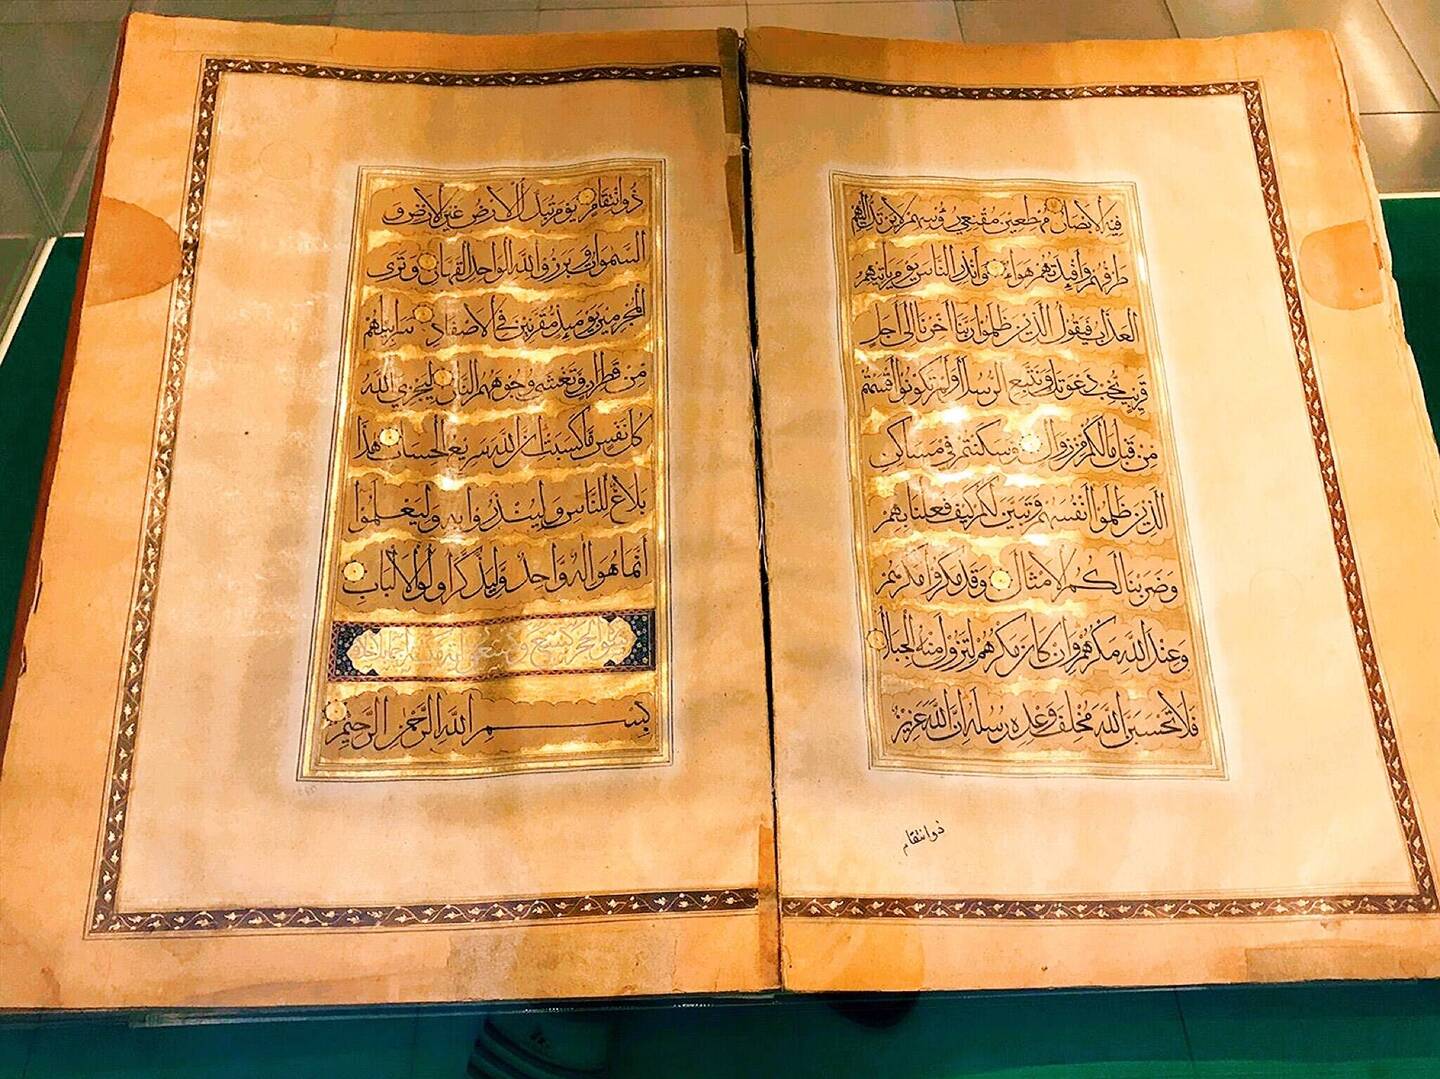 فِيهِ الْأَبْصَارُ مُهْطِعِينَ مُقْنِعِي رُءُوسِهِمْ لَا يَرْتَدُّ إِلَيْهِمْ
طَرْفُهُمْ وَأَفْئِدَتُهُمْ هَوَاءٌ وَأَنْذِرِ النَّاسَ يَوْمَ يَأْتِيهِمُ
الْعَذَابُ فَيَقُولُ الَّذِينَ ظَلَمُوا رَبَّنَا أَخِّرْنَا إِلَى أَجَلٍ
قَرِيبٍ نُجِبْ دَعْوَتَكَ وَنَتَّبِعِ الرُّسُلَ أَوَلَمْ تَكُونُوا أَقْسَمْتُمْ
مِنْ قَبْلُ مَا لَكُمْ مِنْ زَوَالٍ وَسَكَنْتُمْ فِي مَسَاكِنِ
الَّذِينَ ظَلَمُوا أَنْفُسَهُمْ وَتَبَيَّنَ لَكُمْ كَيْفَ فَعَلْنَا بِهِمْ
وَضَرَبْنَا لَكُمُ الْأَمْثَالَ وَقَدْ مَكَرُوا مَكْرَهُمْ
وَعِنْدَ اللَّهِ مَكْرُهُمْ وَإِنْ كَانَ مَكْرُهُمْ لِتَزُولَ مِنْهُ الْجِبَالُ
فَلَا تَحْسَبَنَّ اللَّهَ مُخْلِفَ وَعْدِهِ رُسُلَهُ إِنَّ اللَّهَ عَزِيزٌ
ذو انتقام
ذُو انْتِقَامٍ يَوْمَ تُبَدَّلُ الْأَرْضُ غَيْرَ الْأَرْضِ وَ
السَّمَوَاتُ وَبَرَزُوا لِلَّهِ الْوَاحِدِ الْقَهَّارِ وَتَرَى
الْمُجْرِمِينَ يَوْمَئِذٍ مُقَرَّنِينَ فِي الْأَصْفَادِ سَرَابِيلُهُمْ
مِنْ قَطِرَانٍ وَتَغْشَى وُجُوهَهُمُ النَّارُ لِيَجْزِيَ اللَّهُ
كُلَّ نَفْسٍ مَا كَسَبَتْ إِنَّ اللَّهَ سَرِيعُ الْحِسَابِ هَذَا
بَلَاغٌ لِلنَّاسِ وَلِيُنْذَرُوا بِهِ وَلِيَعْلَمُوا
أَنَّمَا هُوَ إِلَهٌ وَاحِدٌ وَلِيَذَّكَّرَ أُولُو الْأَلْبَابِ
بِسْمِ اللَّهِ الرَّحْمَنِ الرَّحِيمِ